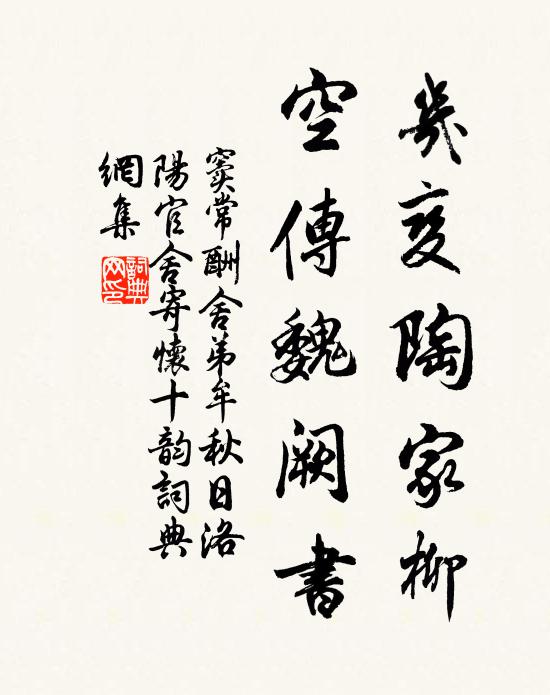 幾变陶家柳
空傳魏阙書
窦常酬舍弟牟秋日洛
陽官舍寄懷十韵詞典
網集
詞典
网印